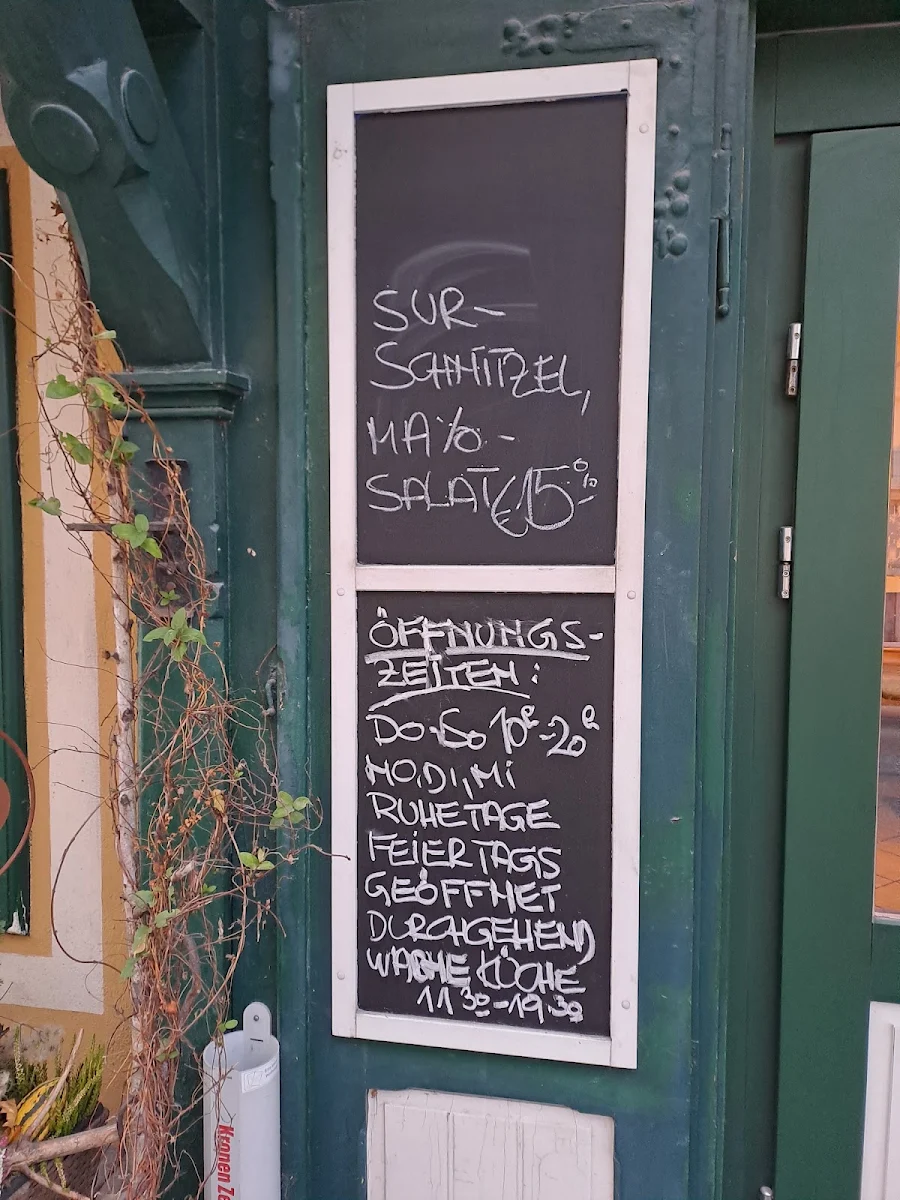 SUR-
SCHNITZEL,
MAYO-
SALAT €15,%
ÖFFNUNGS-
ZEITEN:
DO-SO 10°-20°
MO,DI,MI
RUHETAGE
FEIERTAGS
GEÖFFNET
DURCHGEHEND
WARME KÜCHE
11 30-19 30
Kronen Ze